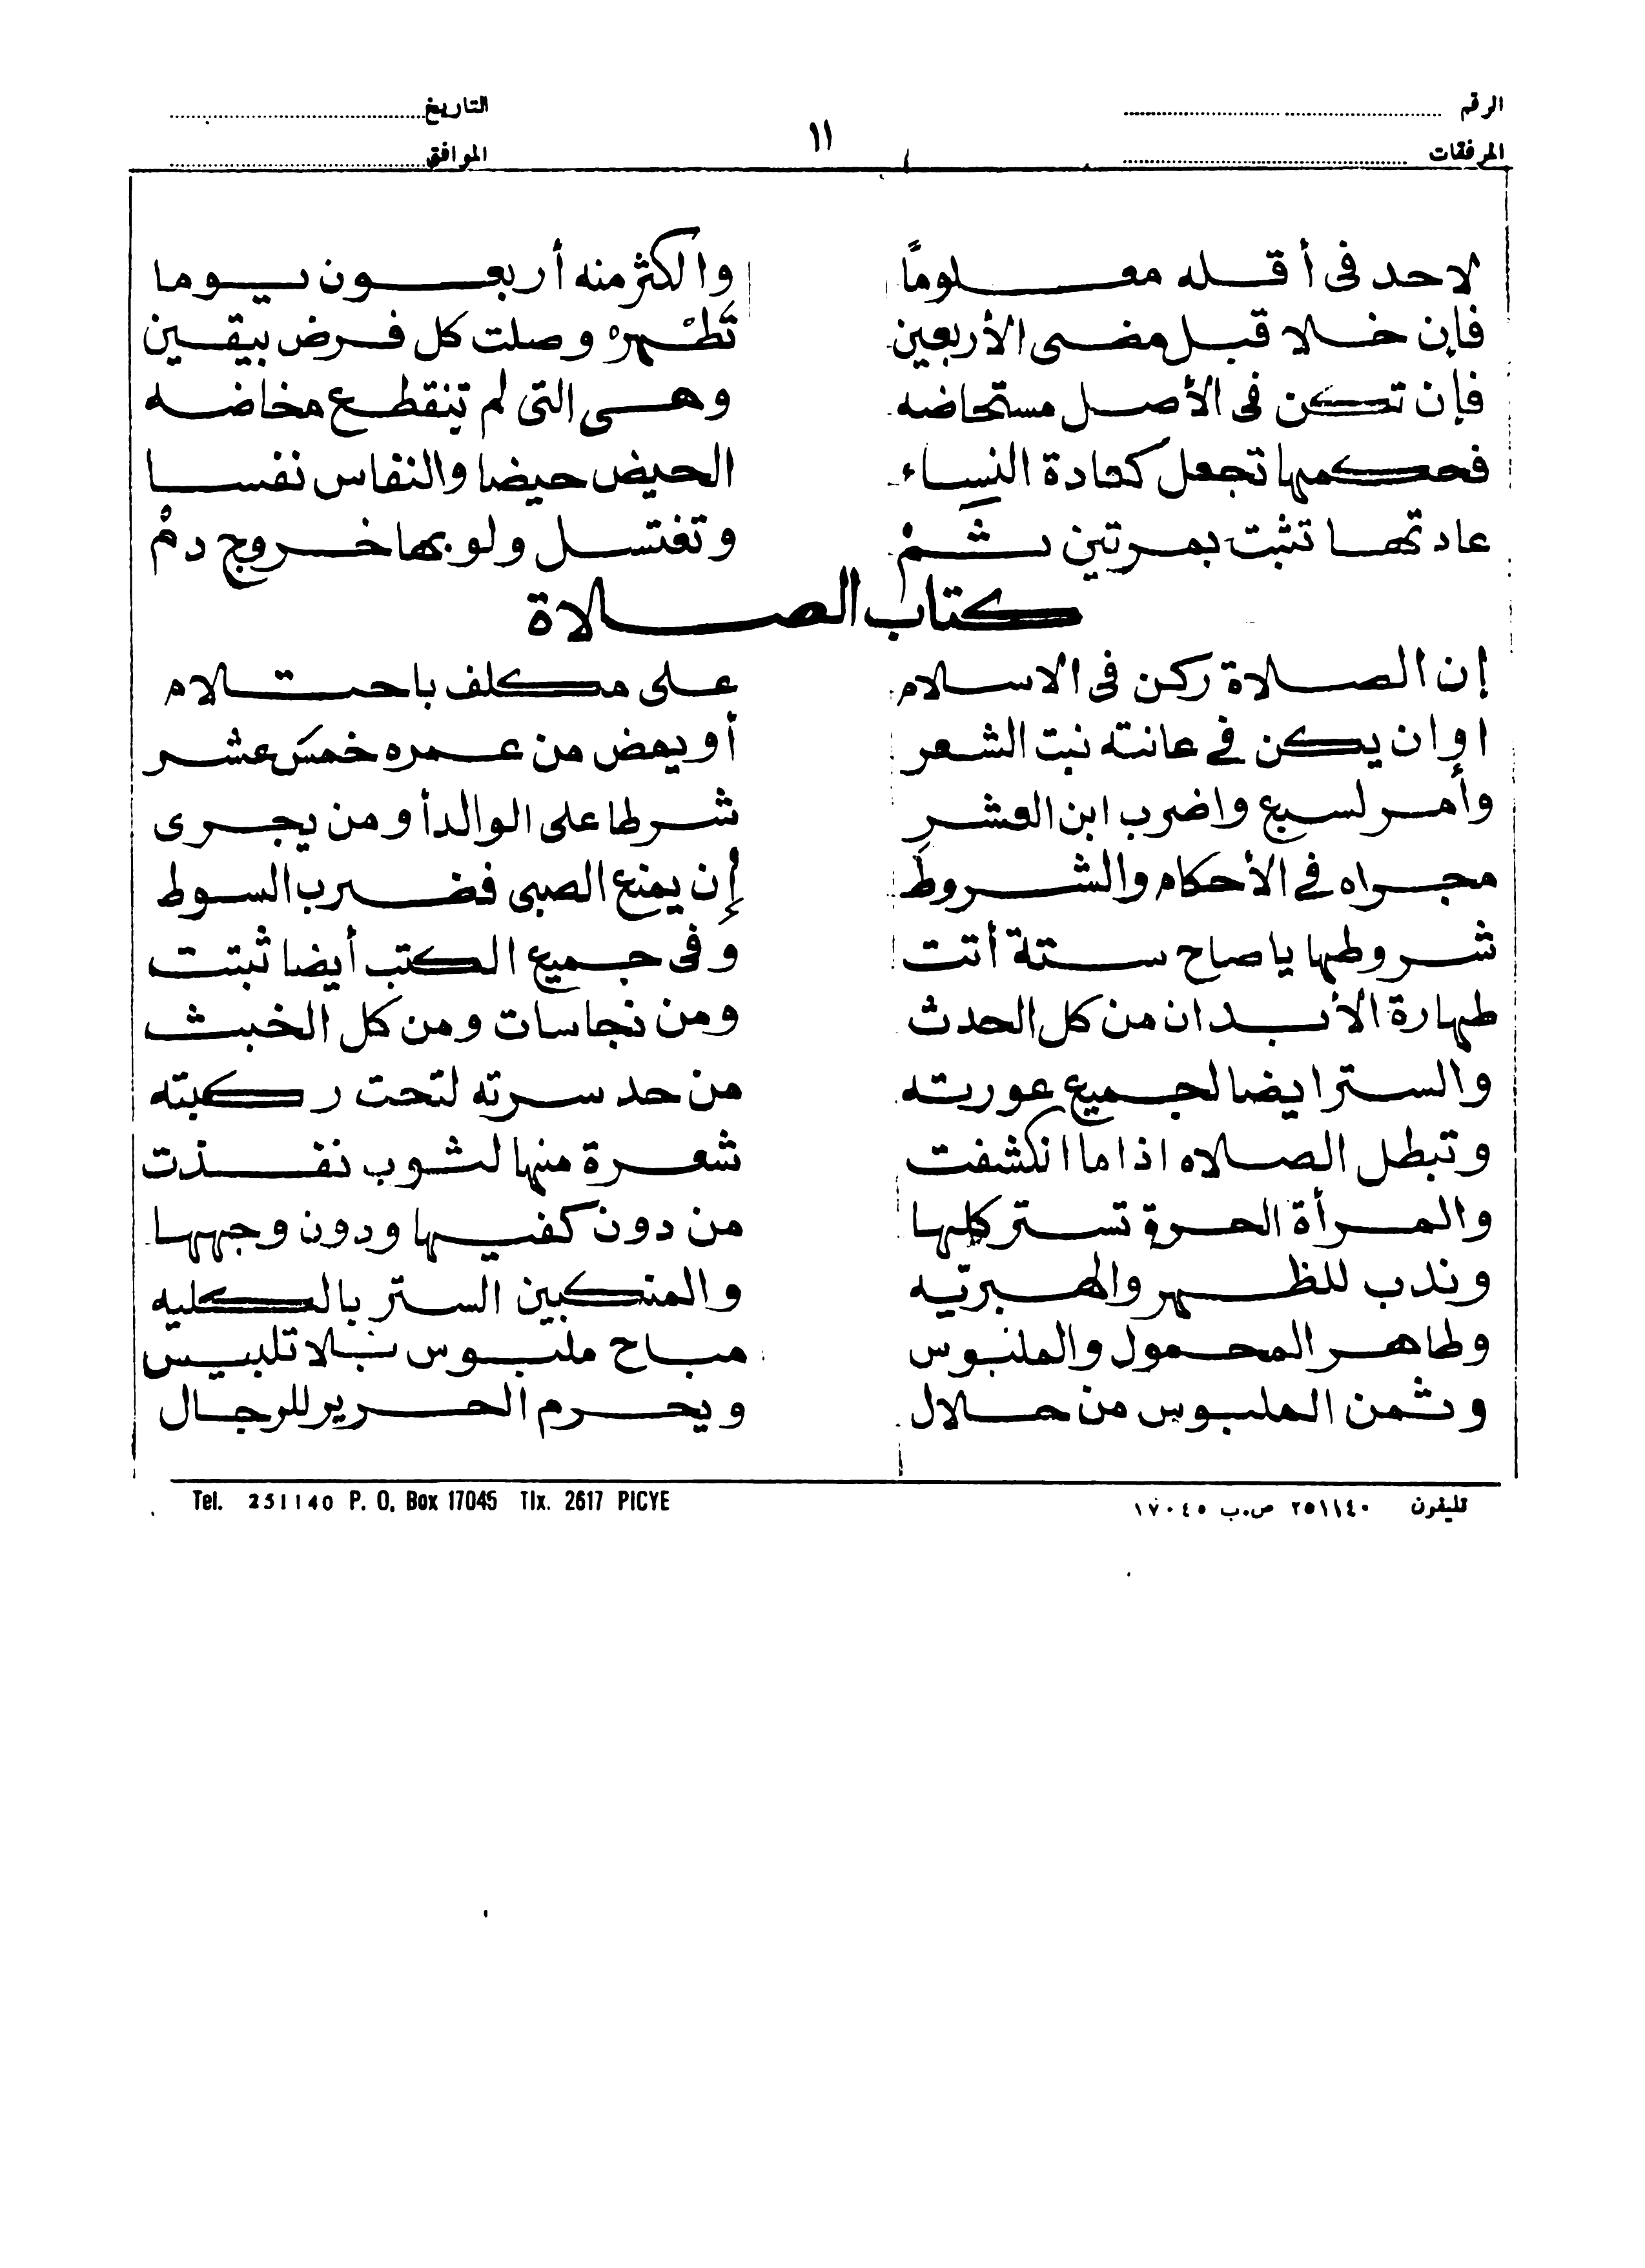 الرقم التاريخ
١١
المرفقات الموافق
لا حد فى أقله معلومًا والكثر منه أربعون يوما
فإن خلا قبل مضى الأربعين تَطْهرْ وصلت كل فرض بيقين
فإن تكن فى الأصل مستحاضه وهى التى لم تنقطع مخاضه
فحكمها تجعل كعادة النساء الحيض حيضا والنفاس نفسا
عادتها تثبت بمرتين ثمْ وتغتسل ولو بها خروج دمْ
كتاب الصلاة
إن الصلاة ركن فى الاسلام على مكلف باحتلام
او ان يكن في عانته نبت الشعر أو يمض من عمره خمسَ عشر
وأمر لسبع واضرب ابن العشرِ شرطا على الوالد أو من يجرى
مجراه في الأحكام والشروط إن يمنع الصبى فضرب السوط
شروطها ياصاح ستة أتت وفى جميع الكتب أيضا ثبتت
طهارة الأبدان من كل الحدث ومن نجاسات ومن كل الخبث
والستر ايضا لجميع عورته من حد سرته لتحت ركبته
وتبطل الصلاه اذا ما انكشفت شعرة منها لثوب نفذت
والمرأة الحرة تستر كلها من دون كفيها ودون وجهها
وندب للظهر والهبرتيه والمنكبين الستر بالكليه
وطاهر المحمول والملبوس مباح ملبوس بلا تلبيس
وثمن الملبوس من حلال ويحرم الحرير للرجال
تليفون ٢٥١١٤٠ ص.ب ١٧٠٤٥ Tel. 251140 P. O. Box 17045 Tlx. 2617 PICYE